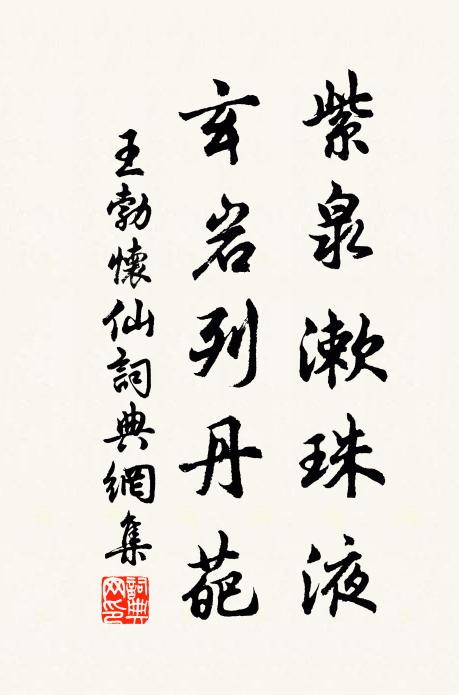 紫泉漱珠液
玄岩列丹葩
王勃懷仙詞典網集
詞典網印